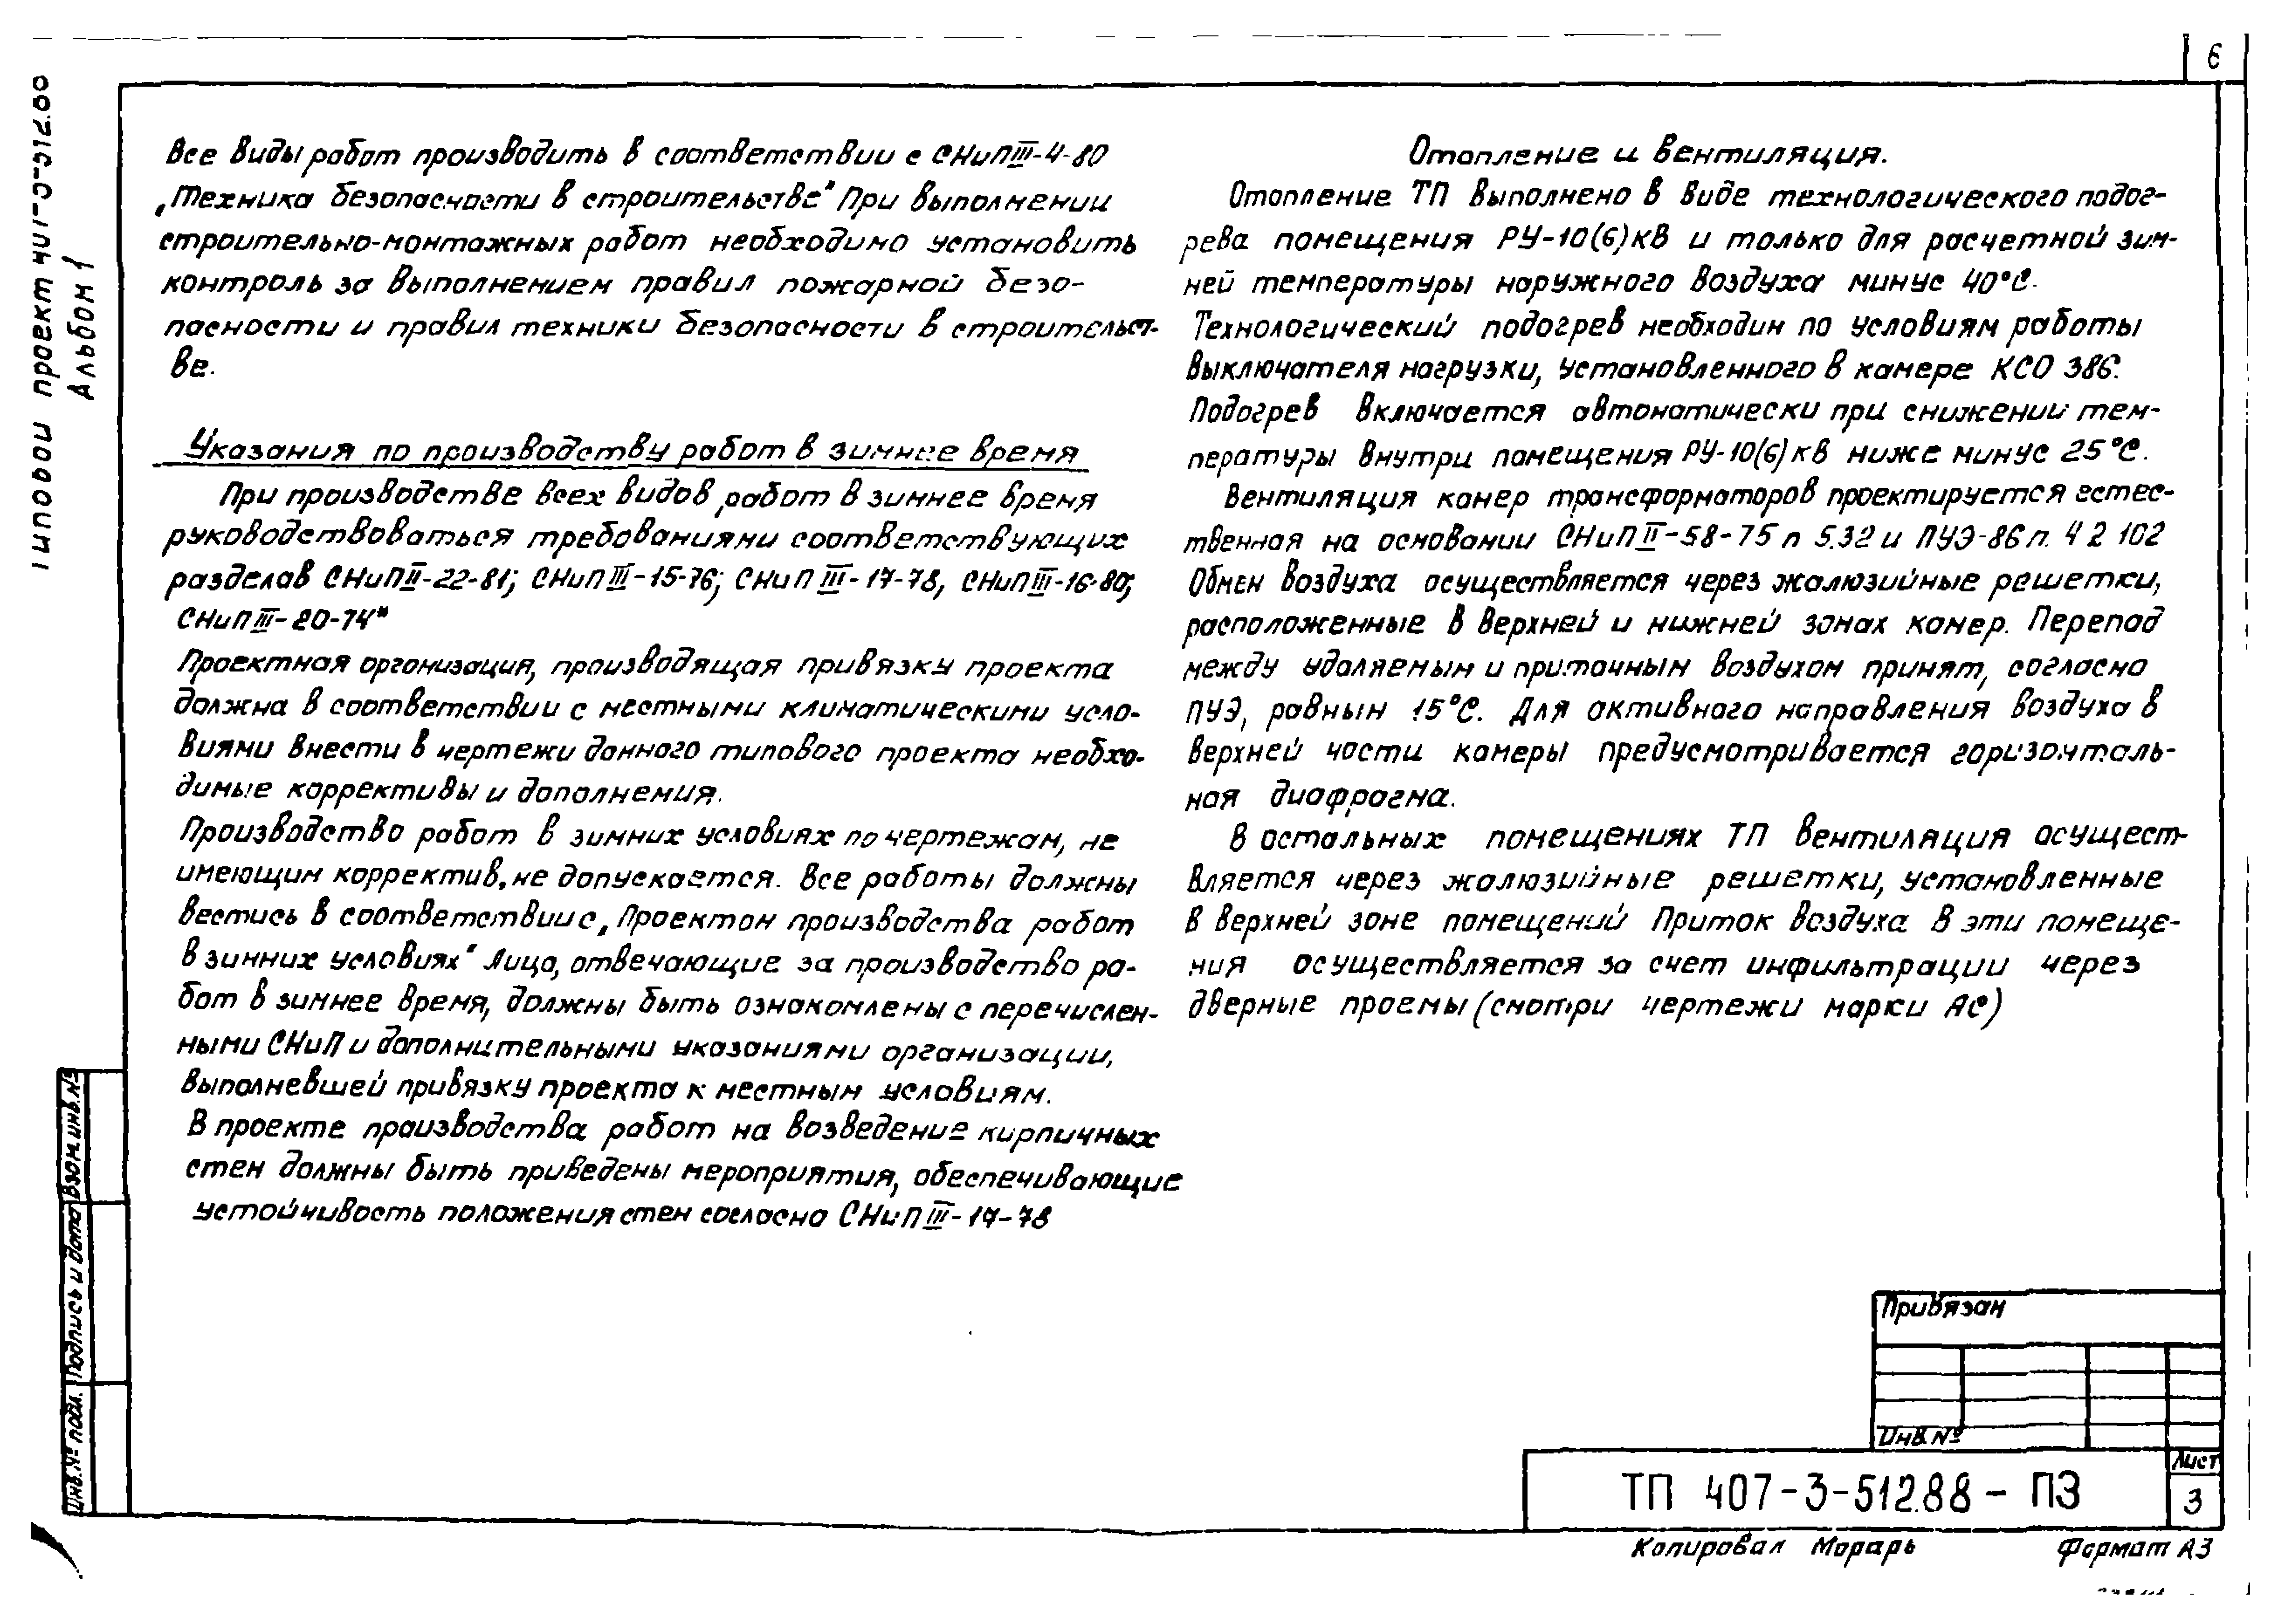 6
Типовой проект 407-3-512.88
Альбом 1
Все виды работ производить в соответствии с СНиП III-4-80
„Техника безопасности в строительстве“ При выполнении
строительно-монтажных работ необходимо установить
контроль за выполнением правил пожарной безо-
пасности и правил техники безопасности в строительст-
ве.
Указания по производству работ в зимнее время
При производстве всех видов работ в зимнее время
руководствоваться требованиями соответствующих
разделов СНиП II-22-81; СНиП III-15-76; СНиП III-17-78, СНиП III-16-80;
СНиП III-20-74*
Проектная организация, производящая привязку проекта
должна в соответствии с местными климатическими усло-
виями внести в чертежи данного типового проекта необхо-
димые коррективы и дополнения.
Производство работ в зимних условиях по чертежам, не
имеющим корректив, не допускается. Все работы должны
вестись в соответствии с „Проектом производства работ
в зимних условиях“ Лица, отвечающие за производство ра-
бот в зимнее время, должны быть ознакомлены с перечислен-
ными СНиП и дополнительными указаниями организации,
выполневшей привязку проекта к местным условиям.
В проекте производства работ на возведение кирпичных
стен должны быть приведены мероприятия, обеспечивающие
устойчивость положения стен согласно СНиП III-17-78
Отопление и вентиляция.
Отопление ТП выполнено в виде технологического подог-
рева помещения РУ-10(6)кВ и только для расчетной зим-
ней температуры наружного воздуха минус 40°С.
Технологический подогрев необходим по условиям работы
выключателя нагрузки, установленного в камере КСО 386.
Подогрев включается автоматически при снижении тем-
пературы внутри помещения РУ-10(6)кВ ниже минус 25°С.
Вентиляция камер трансформаторов проектируется естес-
твенная на основании СНиП II-58-75 п 5.32 и ПУЭ-86 п. 4 2 102
Обмен воздуха осуществляется через жалюзийные решетки,
расположенные в верхней и нижней зонах камер. Перепад
между удаляемым и приточным воздухом принят, согласно
ПУЭ, равным 15°С. Для активного направления воздуха в
верхней части камеры предусмотривается горизонталь-
ная диафрагма.
В остальных помещениях ТП вентиляция осущест-
вляется через жалюзийные решетки, установленные
в верхней зоне помещений Приток воздуха в эти помеще-
ния осуществляется за счет инфильтрации через
дверные проемы (смотри чертежи марки АС)
Взам.инв.№
Подпись и дата
Инв.№ подл.
Привязан
Инв.№
ТП 407-3-512.88 - ПЗ
Лист
3
Копировал Морарь
Формат А3